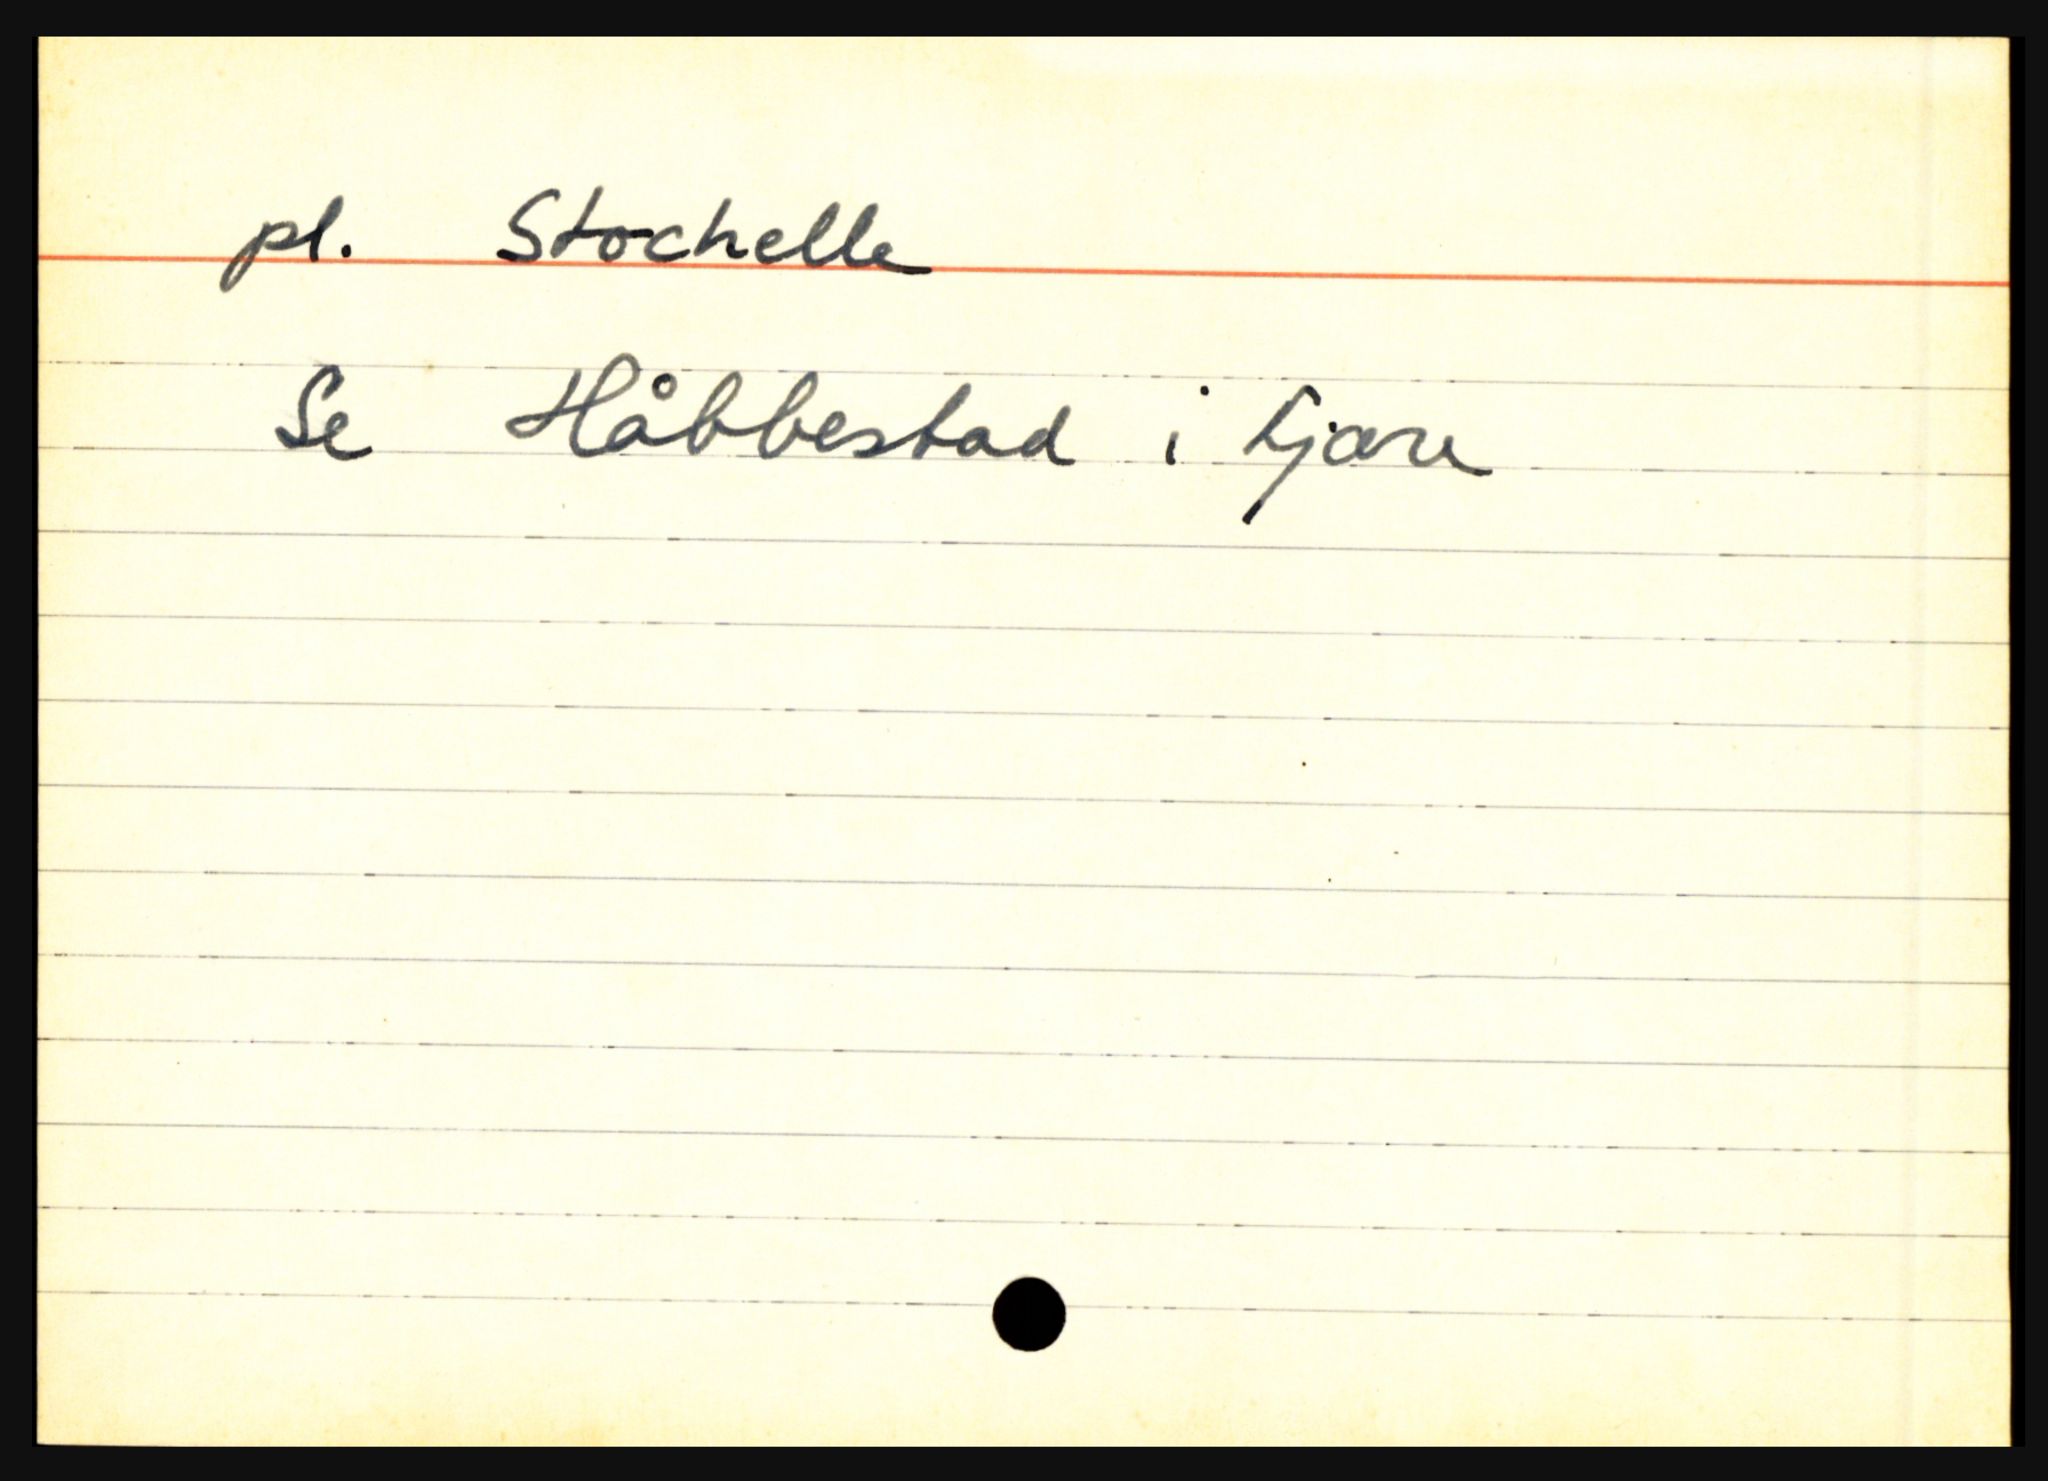 pl. Stochelle
Se Håbbestad i Fjære